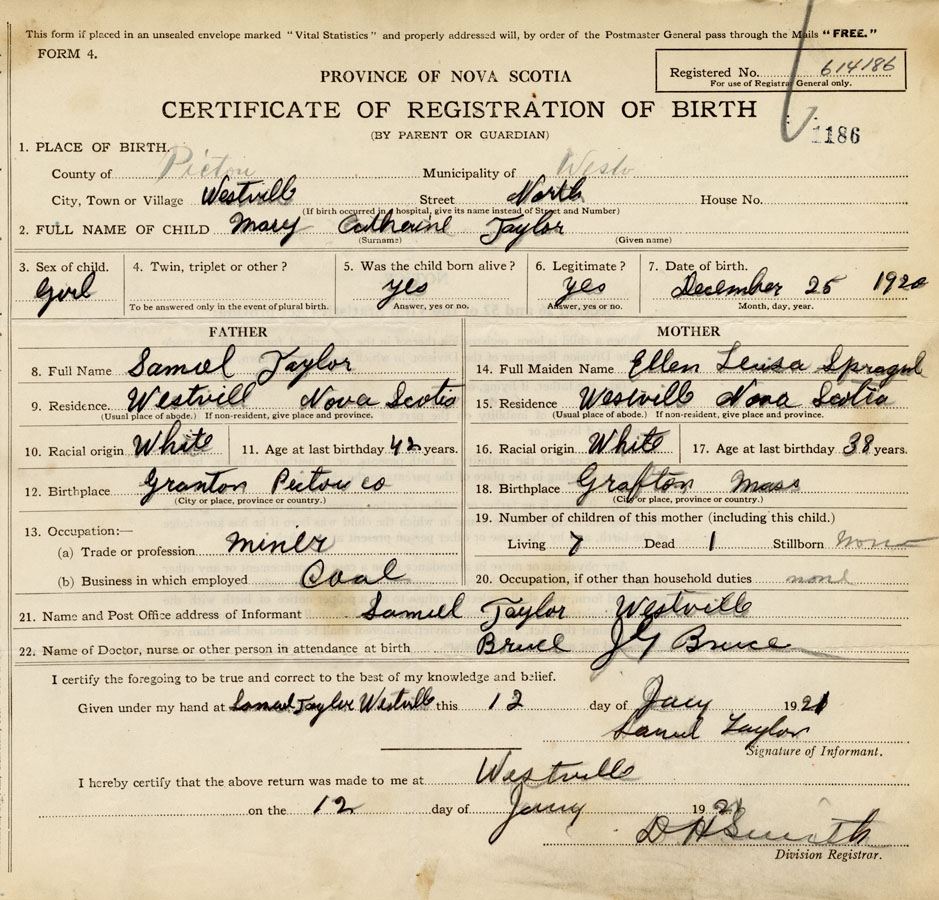 This form if placed in an unsealed envelope marked "Vital Statistics" and properly addressed will, by order of the Postmaster General pass through the Mails "FREE."
FORM 4.
Registered No. 614186
For use of Registrar General only.
PROVINCE OF NOVA SCOTIA
CERTIFICATE OF REGISTRATION OF BIRTH
(BY PARENT OR GUARDIAN)
1186
1. PLACE OF BIRTH.
County of Pictou Municipality of
City, Town or Village Westvill Street North House No.
(If birth occurred in hospital, give its name instead of Street and Number)
2. FULL NAME OF CHILD Mary Catherine Taylor
(Surname) (Given name)
3. Sex of child. 4. Twin, triplet or other? 5. Was the child born alive? 6. Legitimate? 7. Date of birth.
Girl yes yes December 25 1920
To be answered only in the event of plural birth. Answer, yes or no. Answer, yes or no. Month, day, year.
FATHER MOTHER
8. Full Name Samuel Taylor 14. Full Maiden Name Ellen
9. Residence. Westvill Nova Scotia 15. Residence Westville Nova Scotia
(Usual place of abode.) If non-resident, give place and province. (Usual place of abode.) If non-resident, give place and province.
10. Racial origin White 11. Age at last birthday 42 years. 16. Racial origin White 17. Age at last birthday 38 years.
12. Birthplace Granton Pictou co 18. Birthplace Grafton Mass
(City or place, province or country.) (City or place, province or country.)
13. Occupation:— 19. Number of children of this mother (including this child.)
(a) Trade or profession miner Living 7 Dead 1 Stillborn None
(b) Business in which employed Coal 20. Occupation, if other than household duties none
21. Name and Post Office address of Informant Samuel Taylor Westville
22. Name of Doctor, nurse or other person in attendance at birth Bruce J G Bruce
I certify the foregoing to be true and correct to the best of my knowledge and belief.
Given under my hand at Samuel Taylor Westville this 12 day of Jany 1921
Samuel Taylor
Signature of Informant.
I hereby certify that the above return was made to me at Westville
on the 12 day of Jany 1921
D H Smith
Division Registrar.